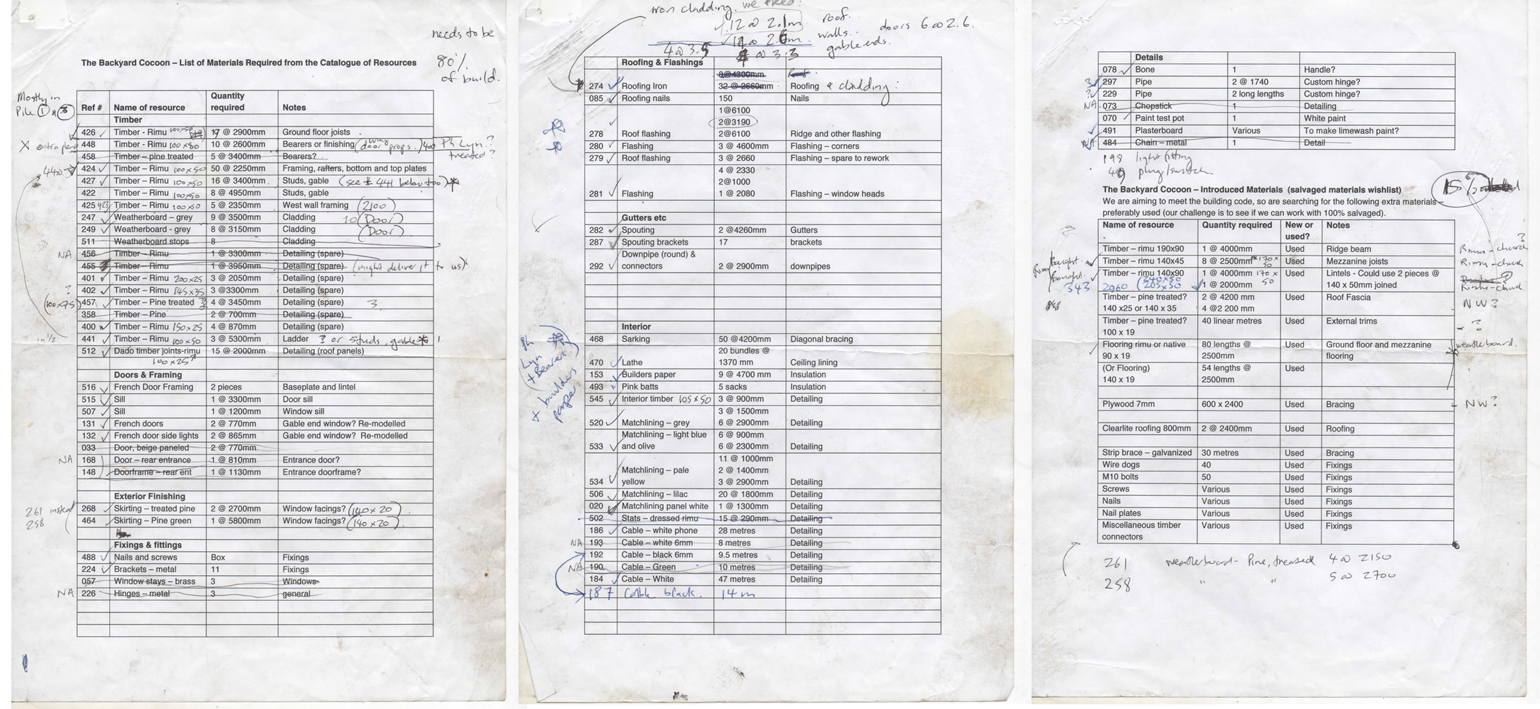 needs to be
80%
of build.
The Backyard Cocoon – List of Materials Required from the Catalogue of Resources
Mostly in
Pile
Ref # Name of resource Quantity required Notes
Timber
426 Timber - Rimu 17 @ 2900mm Ground floor joists
448 Timber - Rimu 100x50 10 @ 2600mm Bearers or finishing
X extra
458 Timber – pine treated 5 @ 3400mm Bearers? treated?
424 Timber - Rimu 100x50 50 @ 2250mm Framing, rafters, bottom and top plates
427 Timber - Rimu 100x50 16 @ 3400mm Studs, gable (see # 441 below too)
422 Timber - Rimu 100x50 8 @ 4950mm Studs, gable
425 Timber – Rimu 100x50 5 @ 2350mm West wall framing (2100)
247 Weatherboard – grey 9 @ 3500mm Cladding 10 (Door)
249 Weatherboard - grey 8 @ 3150mm Cladding (Door)
511 Weatherboard stops 8 Cladding
NA 456 Timber – Rimu 1 @ 3300mm Detailing (spare)
455 Timber – Rimu 1 @ 3950mm Detailing (spare) (might deliver it to us)
401 Timber – Rimu 200x25 3 @ 2050mm Detailing (spare)
? 402 Timber – Rimu 145x35 3 @3300mm Detailing (spare)
(100x75) 457 Timber – Pine treated 4 @ 3450mm Detailing (spare) 3
358 Timber – Pine 2 @ 700mm Detailing (spare)
400 Timber – Rimu 150x25 4 @ 870mm Detailing (spare)
441 Timber – Rimu 100x50 3 @ 5300mm Ladder ? or studs, gable
512 Dado timber joints-rimu 15 @ 2000mm Detailing (roof panels)
100x25
Doors & Framing
516 French Door Framing 2 pieces Baseplate and lintel
515 Sill 1 @ 3300mm Door sill
507 Sill 1 @ 1200mm Window sill
131 French doors 2 @ 770mm Gable end window? Re-modelled
132 French door side lights 2 @ 865mm Gable end window? Re-modelled
033 Door, beige paneled 2 @ 770mm
NA 168 Door – rear entrance 1 @ 810mm Entrance door?
148 Doorframe – rear ent 1 @ 1130mm Entrance doorframe?
Exterior Finishing
261 instead 268 Skirting – treated pine 2 @ 2700mm Window facings? (140x20)
258 464 Skirting – Pine green 1 @ 5800mm Window facings? (140x20)
Fixings & fittings
488 Nails and screws Box Fixings
224 Brackets – metal 11 Fixings
057 Window stays – brass 3 Windows
NA 226 Hinges – metal 3 general
iron cladding. we need:
12 @ 2.1m roof. doors 6 @ 2.6.
14 @ 2.6m walls.
4 @ 3.5 4 @ 3.3 gable ends.
Roofing & Flashings
8@4300mm
274 Roofing Iron 32 @ 2660mm Roofing & cladding:
085 Roofing nails 150 Nails
1@6100
2@3190
278 Roof flashing 2@6100 Ridge and other flashing
280 Flashing 3 @ 4600mm Flashing – corners
279 Roof flashing 3 @ 2660 Flashing – spare to rework
4 @ 2330
2@1000
281 Flashing 1 @ 2080 Flashing – window heads
Gutters etc
282 Spouting 2 @4260mm Gutters
287 Spouting brackets 17 brackets
Downpipe (round) &
292 connectors 2 @ 2900mm downpipes
Interior
468 Sarking 50 @4200mm Diagonal bracing
20 bundles @
470 Lathe 1370 mm Ceiling lining
153 Builders paper 9 @ 4700 mm Insulation
493 Pink batts 5 sacks Insulation
545 Interior timber 105x50 3 @ 900mm Detailing
3 @ 1500mm
520 Matchlining – grey 6 @ 2900mm Detailing
Matchlining – light blue 6 @ 900mm
533 and olive 6 @ 2300mm Detailing
11 @ 1000mm
Matchlining – pale 2 @ 1400mm
534 yellow 3 @ 2900mm Detailing
506 Matchlining – lilac 20 @ 1800mm Detailing
020 Matchlining panel white 1 @ 1300mm Detailing
502 Stats – dressed rimu 15 @ 290mm Detailing
186 Cable – white phone 28 metres Detailing
NA 193 Cable – white 6mm 8 metres Detailing
192 Cable – black 6mm 9.5 metres Detailing
NA 190 Cable – Green 10 metres Detailing
184 Cable – White 47 metres Detailing
187 Cable black. 14 m
Ph
Lyn
+ Bearers
+ builders
paper
Details
078 Bone 1 Handle?
3 297 Pipe 2 @ 1740 Custom hinge?
? 229 Pipe 2 long lengths Custom hinge?
NA 073 Chopstick 1 Detailing
070 Paint test pot 1 White paint
491 Plasterboard Various To make limewash paint?
N/A 484 Chain – metal 1 Detail
198 light fitting
plug/switch
15%
The Backyard Cocoon – Introduced Materials (salvaged materials wishlist)
We are aiming to meet the building code, so are searching for the following extra materials –
preferably used (our challenge is to see if we can work with 100% salvaged).
Name of resource Quantity required New or used? Notes
Timber – rimu 190x90 1 @ 4000mm Used Ridge beam
Timber – rimu 140x45 8 @ 2500mm Used Mezzanine joists
Timber – rimu 140x90 1 @ 4000mm Used Lintels - Could use 2 pieces @
1 @ 2000mm 140 x 50mm joined
343
Timber – pine treated? 2 @ 4200 mm Used Roof Fascia NW?
140 x25 or 140 x 35 4 @2 200 mm
Timber – pine treated? 40 linear metres Used External trims - ?
100 x 19
Flooring rimu or native 80 lengths @ Used Ground floor and mezzanine weatherboard.
90 x 19 2500mm flooring
(Or Flooring) 54 lengths @ Used
140 x 19 2500mm
Plywood 7mm 600 x 2400 Used Bracing - NW?
Clearlite roofing 800mm 2 @ 2400mm Used Roofing
Strip brace – galvanized 30 metres Used Bracing
Wire dogs 40 Used Fixings
M10 bolts 50 Used Fixings
Screws Various Used Fixings
Nails Various Used Fixings
Nail plates Various Used Fixings
Miscellaneous timber Various Used Fixings
connectors
261 weatherboard - Pine, treated 4 @ 2150
258 " " 5 @ 2700